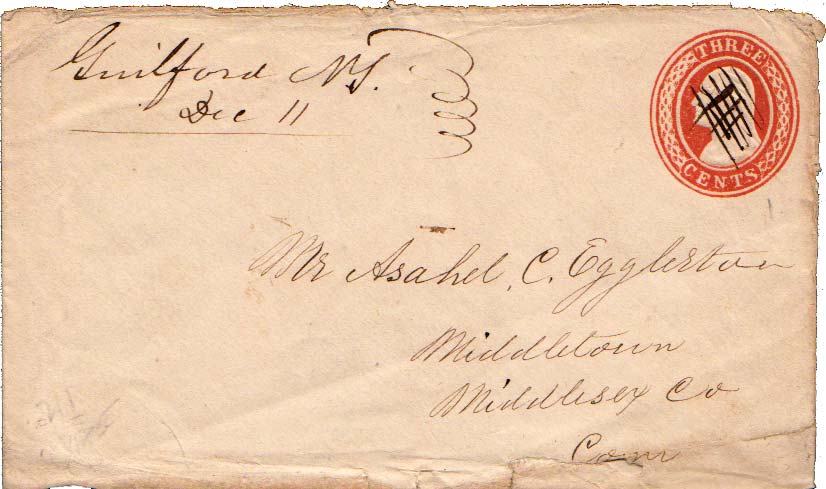 Guilford NY.
Dec 11
THREE
CENTS
Mr Asahel. C. Egglerton
Middletown
Middlesex Co
Conn